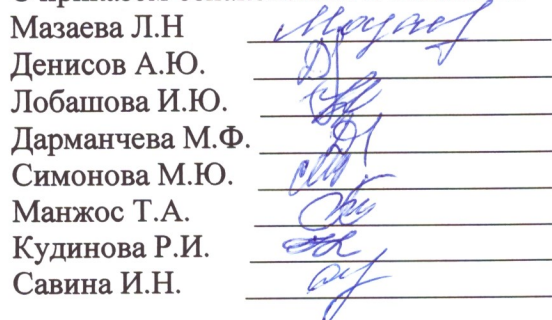 Мазаева Л.Н
Денисов А.Ю.
Лобашова И.Ю.
Дарманчева М.Ф.
Симонова М.Ю.
Манжос Т.А.
Кудинова Р.И.
Савина И.Н.